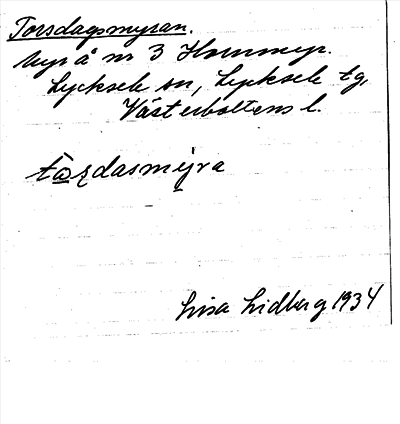 Torsdagsmyran.
Myr å nr 3 Hornmyr.
Lycksele sn, Lycksele tg,
Västerbottens l.
tå̱ʐdasmy̱ra
Lisa Lidberg 1934